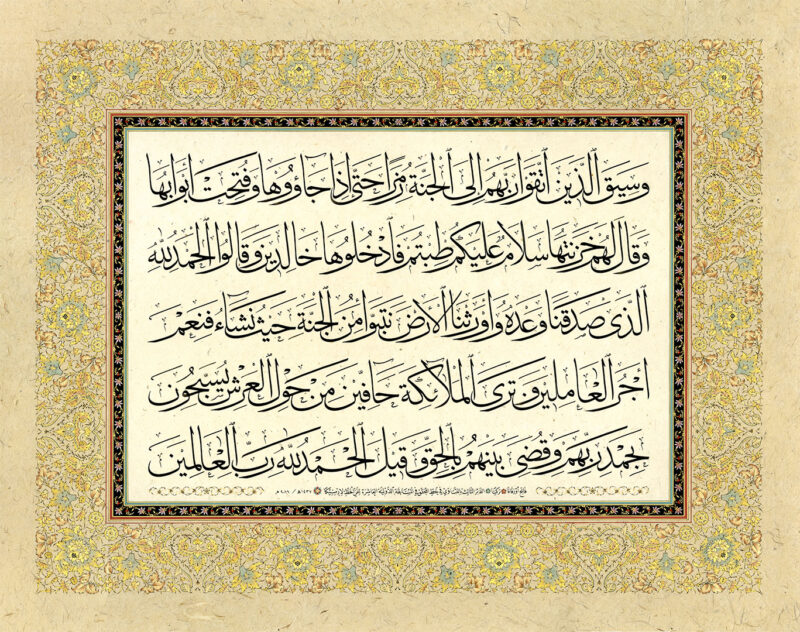 وسيق الذين اتقوا ربهم إلى الجنة زمرا حتى إذا جاؤوها وفتحت أبوابها
وقال لهم خزنتها سلام عليكم طبتم فادخلوها خالدين وقالوا الحمد لله
الذي صدقنا وعده وأورثنا الأرض نتبوأ من الجنة حيث نشاء فنعم
أجر العاملين وترى الملائكة حافين من حول العرش يسبحون
بحمد ربهم وقضي بينهم بالحق وقيل الحمد لله رب العالمين